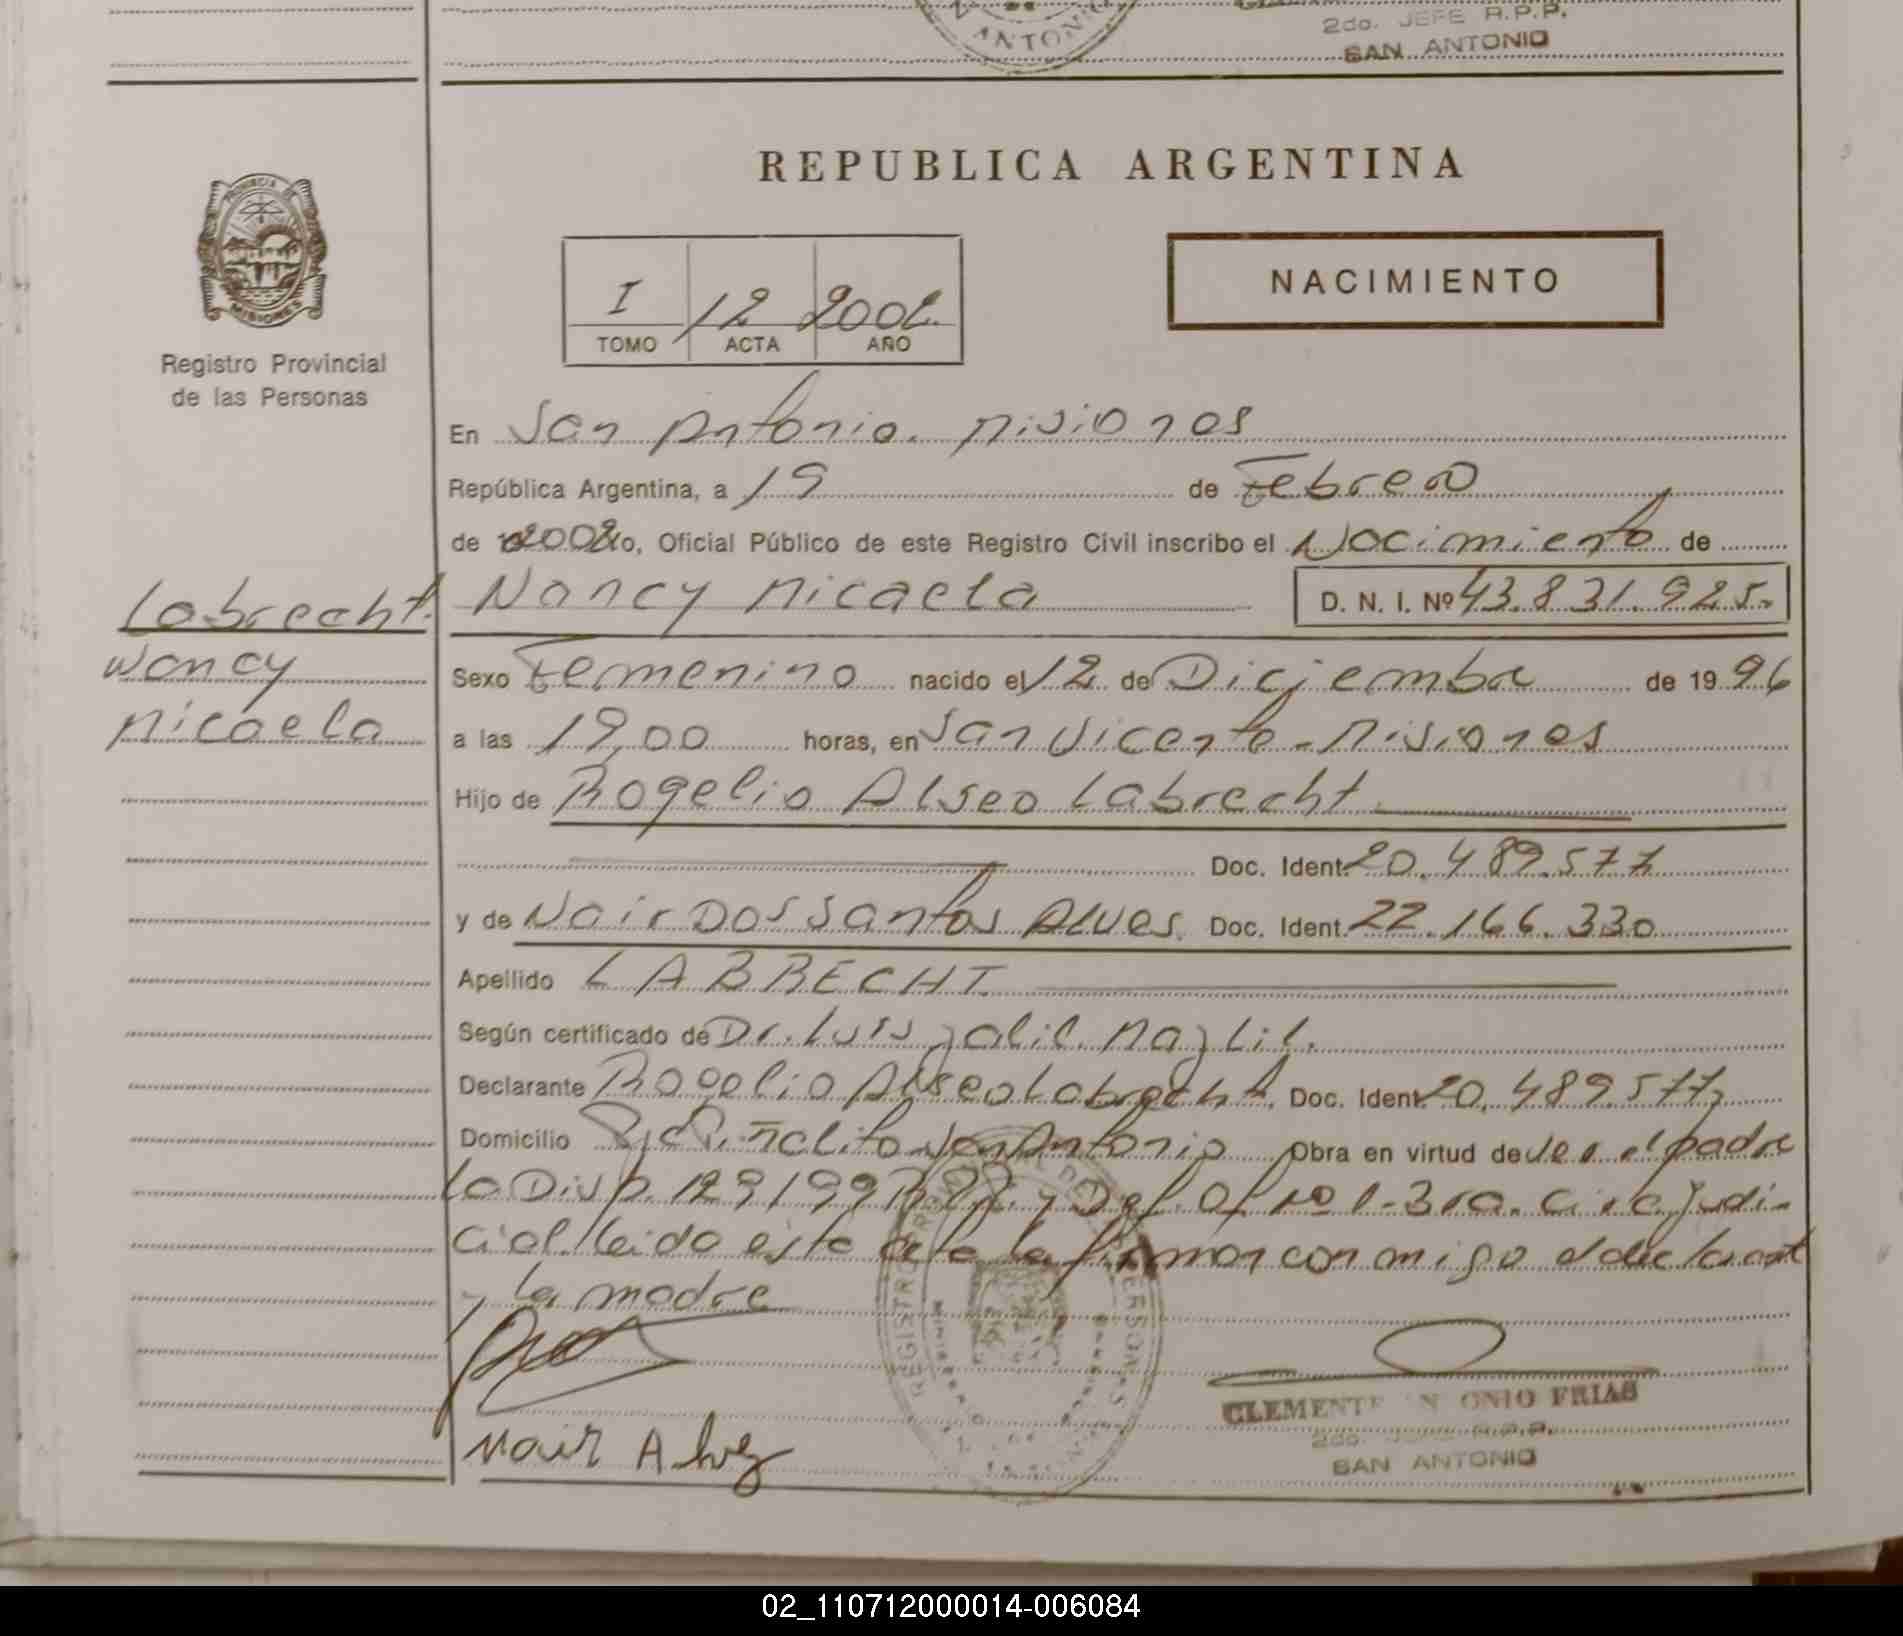 ANTONIO
2do. JEFE R.P.P.
SAN ANTONIO
REPUBLICA ARGENTINA
PROVINCIA DE
MISIONES
Registro Provincial
de las Personas
I 12 2002.
TOMO ACTA AÑO
NACIMIENTO
En San Antonio. Misiones
República Argentina, a 19 de Febrero
de 2002 yo, Oficial Público de este Registro Civil inscribo el Nacimiento de
Labrecht.
Nancy
Micaela
Nancy Micaela D. N. I. Nº 43.831.925.
Sexo Femenino nacido el 12 de Diciembre de 19 96
a las 19,00 horas, en San Vicente - Misiones
Hijo de Rogelio Alseo Labrecht
Doc. Ident. 20.489.577
y de Nair Dos Santos Alves. Doc. Ident. 22.166.330
Apellido LABRECHT
Según certificado de Dr. Luis Jalil Mazlil.
Declarante Rogelio Alseo Labrecht. Doc. Ident. 20.489.577
Domicilio Piñalito San Antonio Obra en virtud de ser el padre
la Disp. 129/199 y Def. Of. Nº 1-3ra. Circ. Judi-
cial. leido este acta la firman conmigo el declarant
y la madre
REGISTRO PERSONAS
Nair Alvez
CLEMENTE ONIO FRIAS
2do. JEFE R.P.P.
SAN ANTONIO
02_110712000014-006084